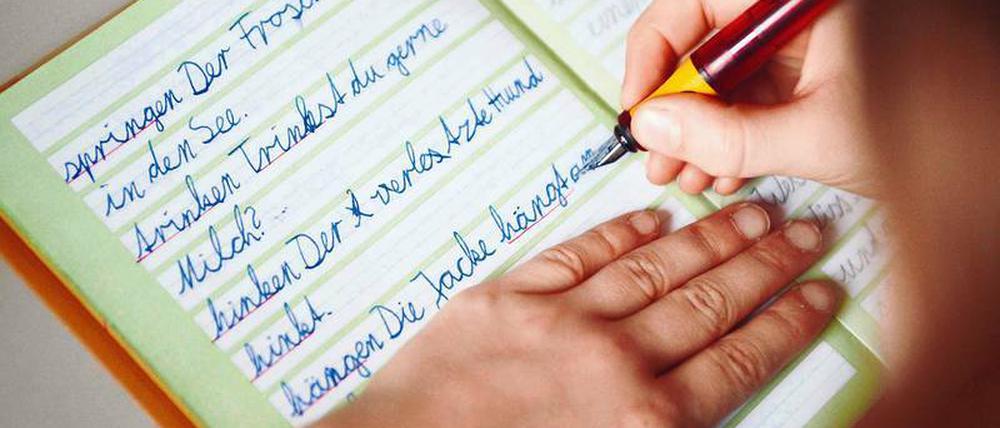 springen Der Frosch
in den See.
trinken Trinkst du gerne
Milch?
hinken Der verlestzte Hund
hinkt.
hängen Die Jacke hängt am